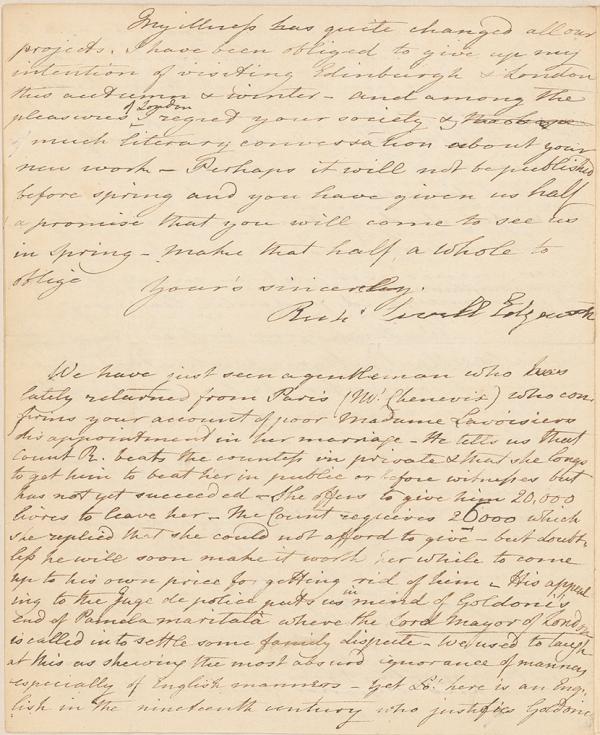 My illness has quite changed all our
projects. I have been obliged to give up my
intention of visiting Edinburgh & London
this autumn & winter – and among the
of London
pleasures I regret your society &
much literary conversation about your
new work – Perhaps it will not be published
before spring and you have given us half
a promise that you will come to see us
in spring – make that half a whole to
oblige yours sincerely.
Richd Lovell Edgeworth
We have just seen a gentleman who has
lately returned from Paris (Mr. Chenevix) who con
firms your account of poor Madame Lavoisiers
disappointment in her marriage – He tells us that
Count R. beats the countess in private & that she longs
to get him to beat her in public or before witnesses but
has not yet succeeded – She offers to give him 20,000
livres to leave her – The Count requires 26000 which
she replied that she could not afford to give – but doubt
less he will soon make it worth her while to come
up to his own price for getting rid of him – His appeal
ing to the juge de police puts us in mind of Goldoni's
end of Pamela maritata where the Lord Mayor of London
is called in to settle some family dispute – We used to laugh
at this as shewing the most absurd ignorance of manners
especially of English manners – Yet Lo! here is an Eng-
lish in the nineteenth century who justifies Goldoni